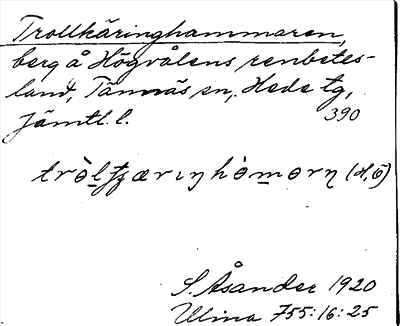 Trollkäringhammaren,
berg å Högvålens renbetes-
land, Tännäs sn, Hede tg,
Jämtl. l.
390
S. Åsander 1920
Ulma 755:16:25